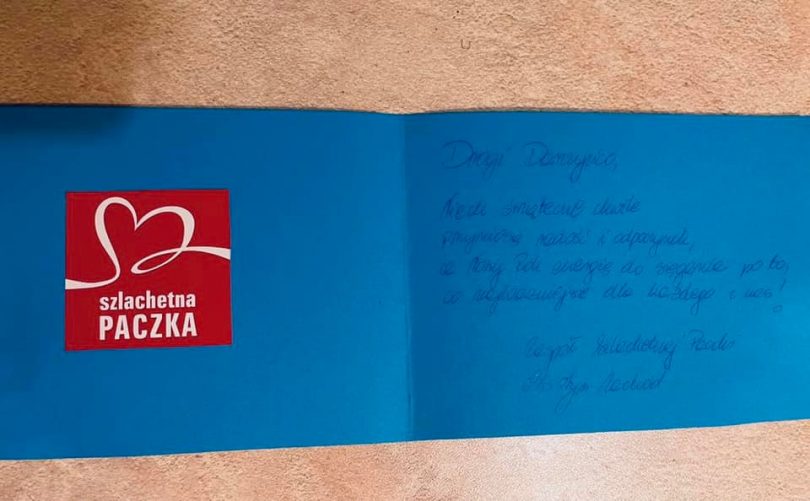 szlachetna
PACZKA
Drogi Darczyńco,
Niech świąteczne chwile
przyniosą radość i odpoczynek,
a Nowy Rok energię do sięgania po to,
co najważniejsze dla każdego z nas!
Zespół Szlachetnej Paczki